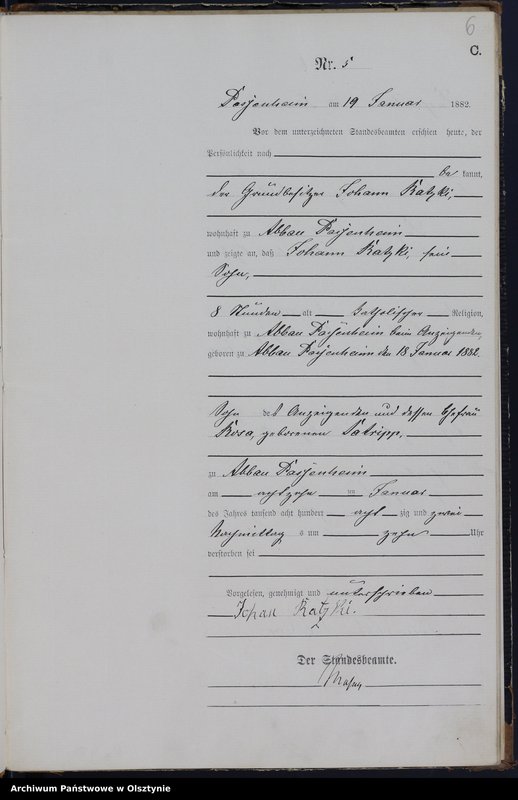 6
C.
Nr. 5
Passenheim am 19 Januar 1882.
Vor dem unterzeichneten Standesbeamten erschien heute, der
Persönlichkeit nach
be kannt,
der Grundbesitzer Johann Katzki,
wohnhaft zu Abbau Passenheim
und zeigte an, daß Johann Katzki, sein
Sohn,
8 Stunden alt katholischer Religion,
wohnhaft zu Abbau Passenheim beim Anzeigenden,
geboren zu Abbau Passenheim den 18 Januar 1882.
Sohn des Anzeigenden und dessen Ehefrau
Rosa, geborenen
zu Abbau Passenheim
am achtzehn ten Januar
des Jahres tausend acht hundert acht zig und zwei
Nachmittag s um zehn Uhr
verstorben sei
Vorgelesen, genehmigt und unterschrieben
Johan Katzki.
Der Standesbeamte.
Archiwum Państwowe w Olsztynie